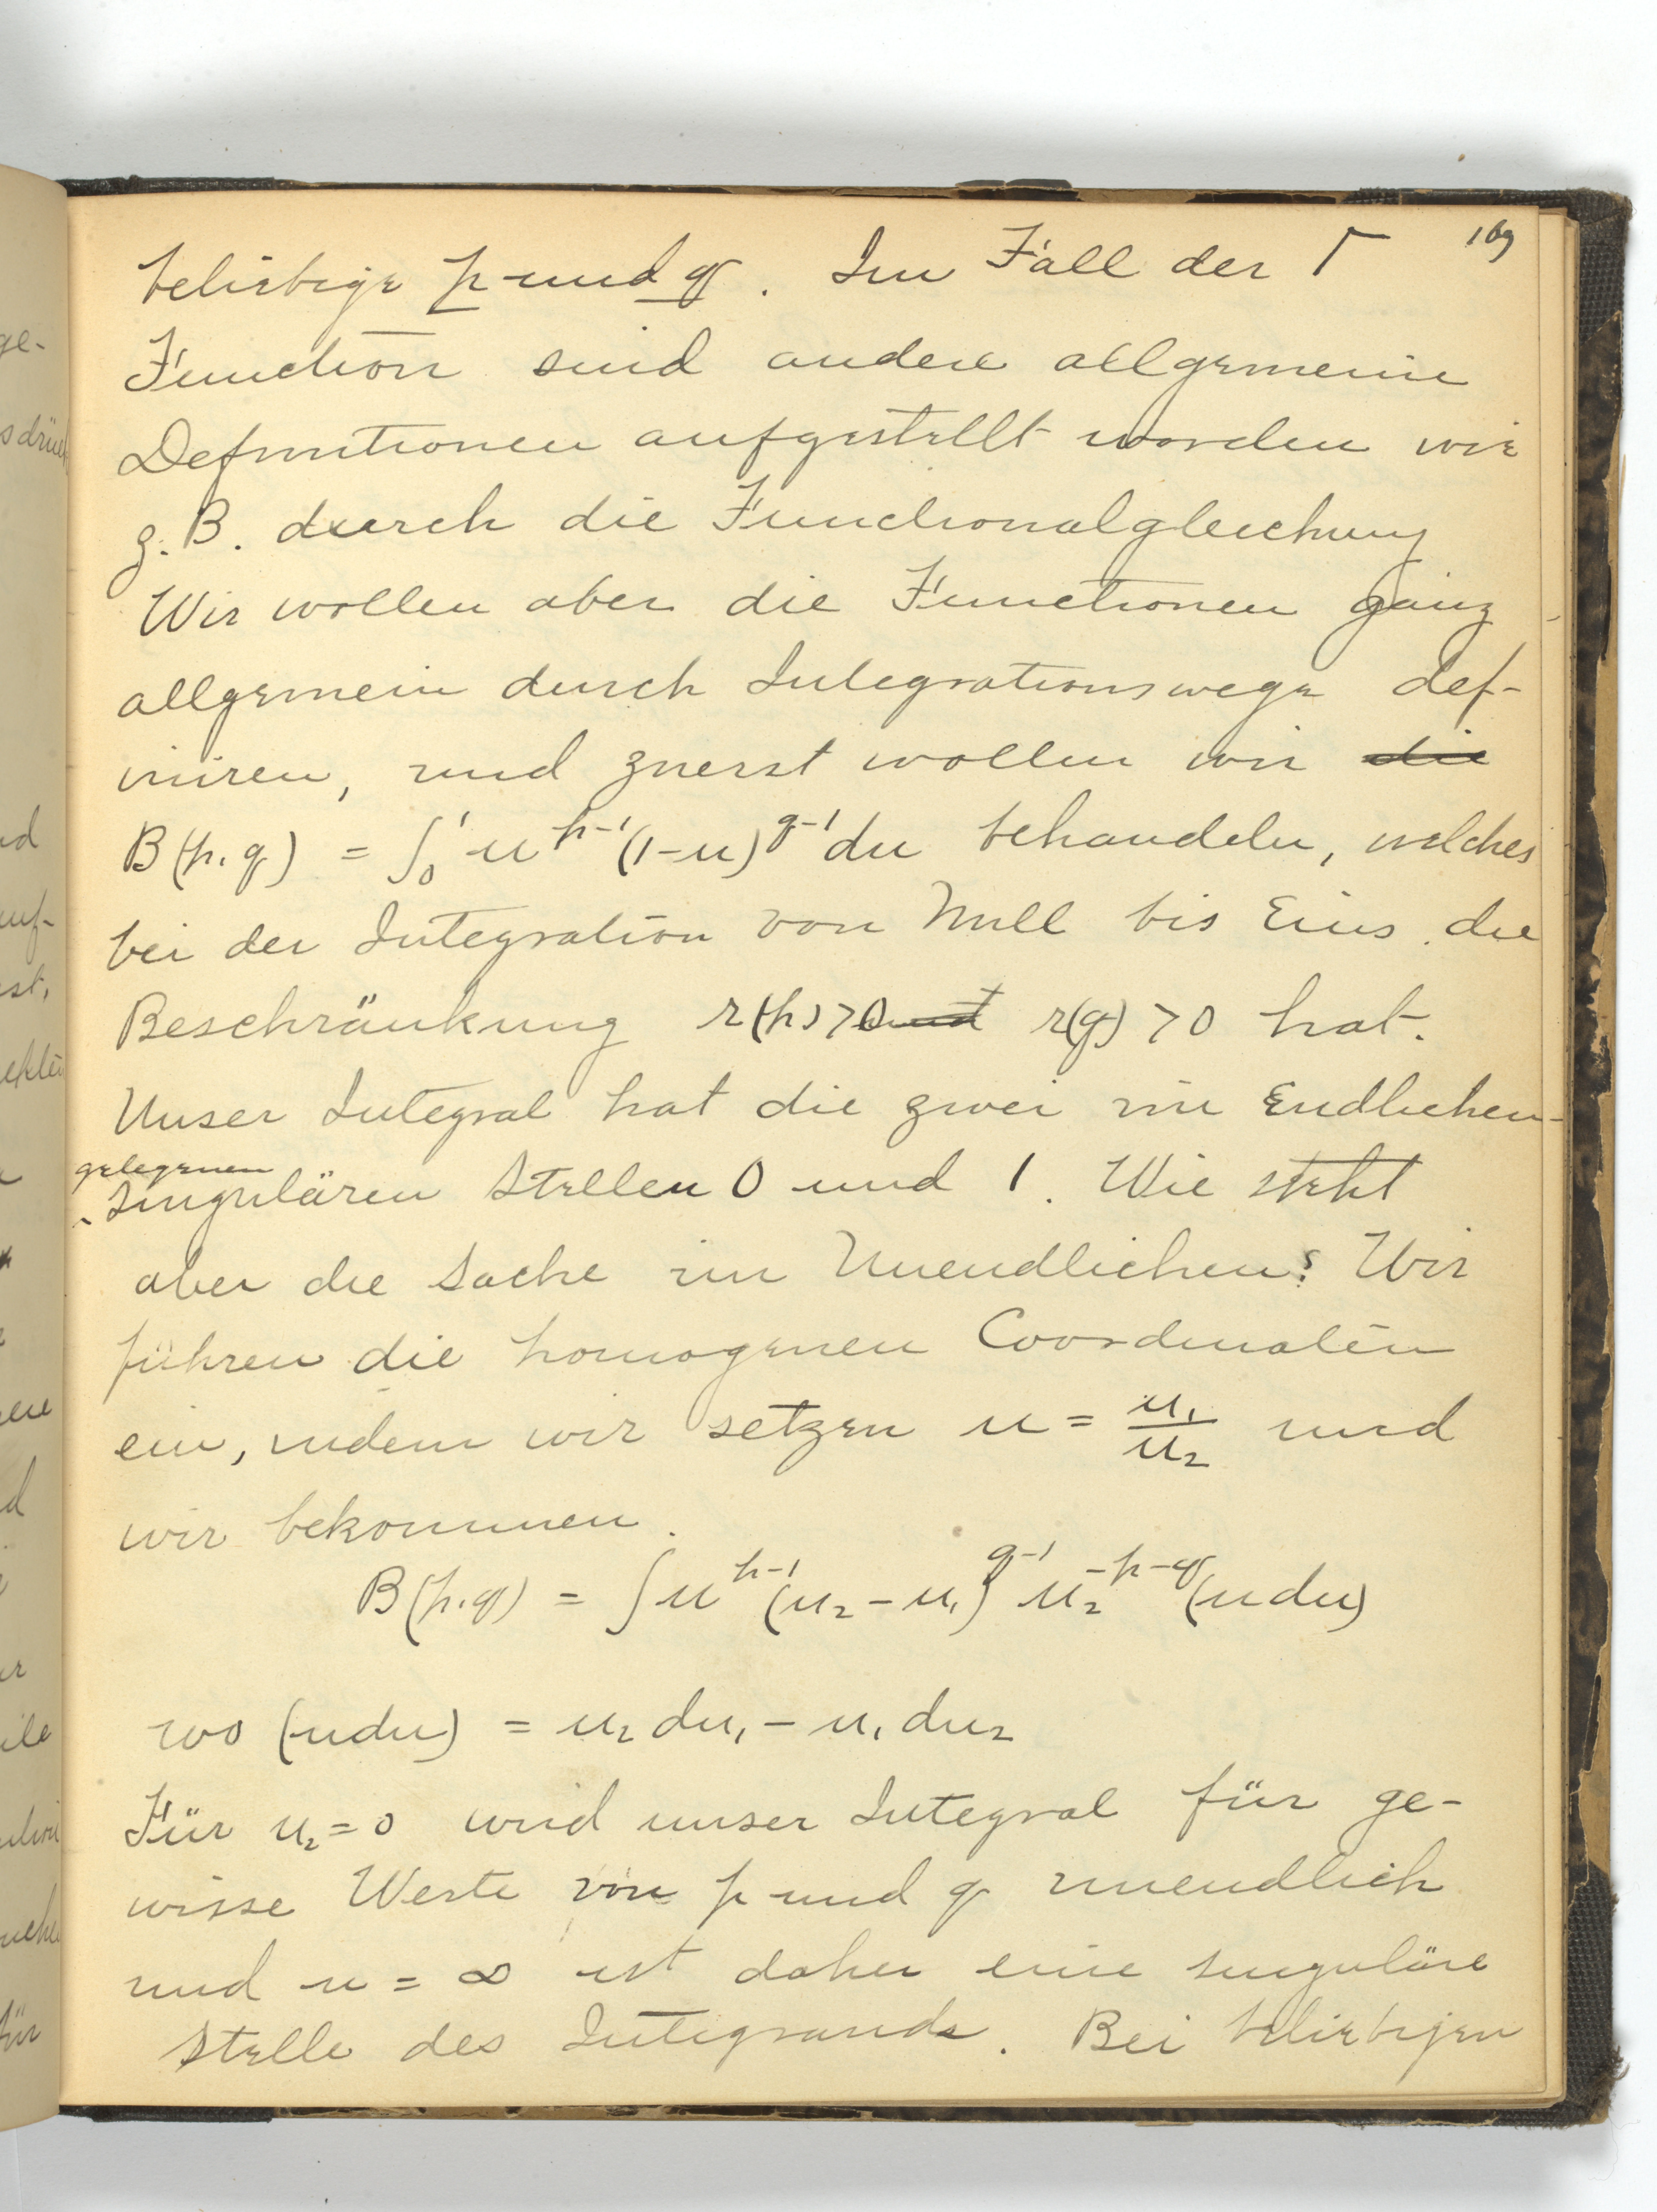 169
beliebige p und q. Im Fall der Γ
Function sind andere allgemeine
Definitionen aufgestellt worden wie
z. B. durch die Functionalgleichung
Wir wollen aber die Functionen ganz
allgemein durch Integrationswege def-
iniren, und zuerst wollen wir die
B(p.q) = ∫₀¹ u^{p-1}(1-u)^{q-1}du behandeln, welches
bei der Integration von Null bis Eins die
Beschränkung r(p)>0 und r(q)>0 hat.
Unser Integral hat die zwei im Endlichen
gelegenen
singulären Stellen 0 und 1. Wie steht
aber die Sache im Unendlichen? Wir
führen die homogenen Coordinaten
ein, indem wir setzen u = u₁/u₂ und
wir bekommen.
B(p.q) = ∫u^{p-1}(u₂-u₁)^{q-1} u₂^{-p-q}(udu)
wo (udu) = u₂du₁ - u₁du₂
Für u₂=0 wird unser Integral für ge-
wisse Werte von p und q unendlich
und u = ∞ ist daher eine singuläre
Stelle des Integrands. Bei beliebigen
ge-
sdrück
nd
auf-
st,
d
ile
für